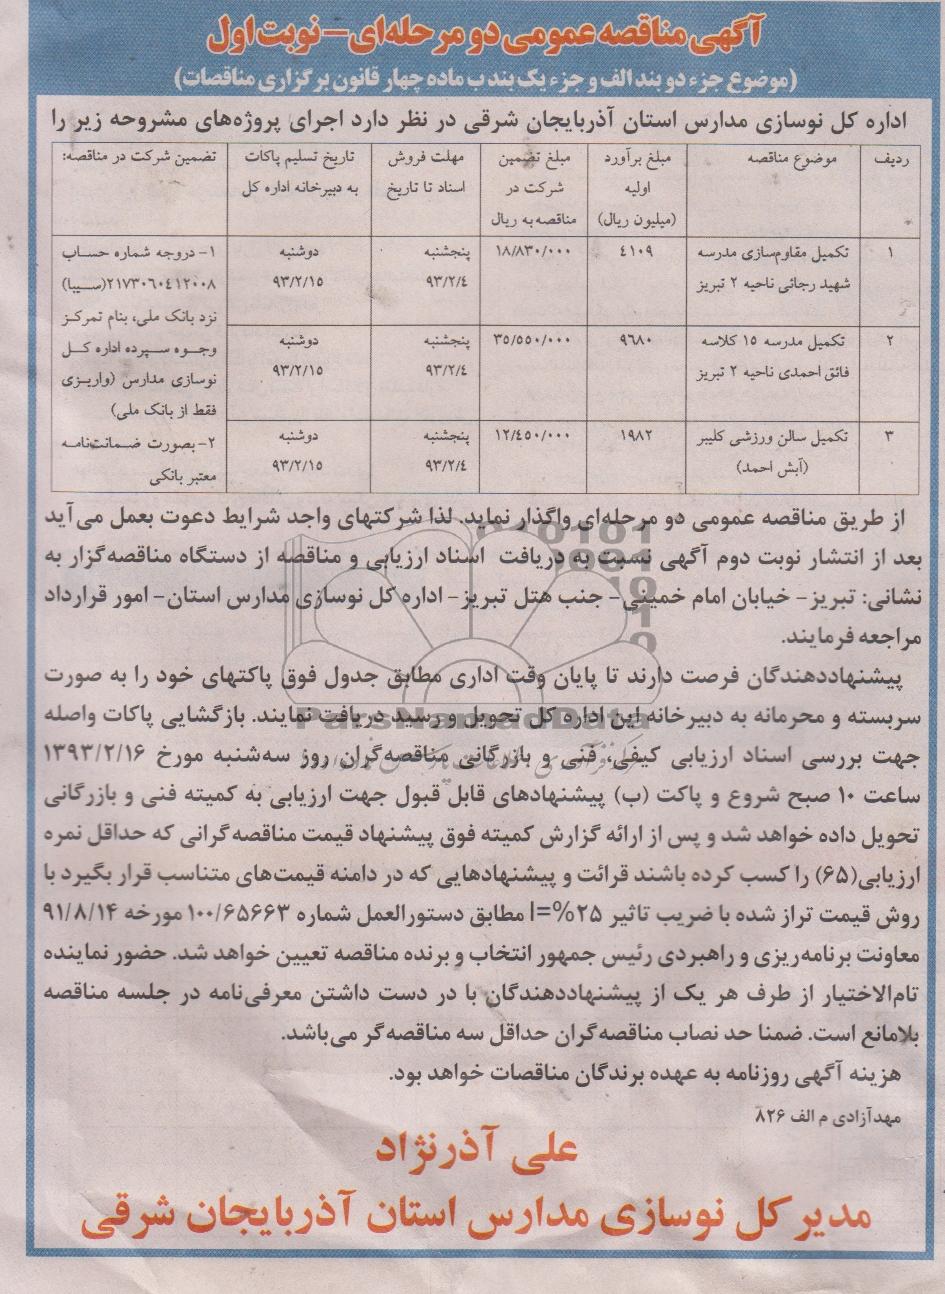 آگهی مناقصه عمومی دو مرحله‌ای – نوبت اول
(موضوع جزء دو بند الف و جزء یک بند ب ماده چهار قانون برگزاری مناقصات)
اداره کل نوسازی مدارس استان آذربایجان شرقی در نظر دارد اجرای پروژه‌های مشروحه زیر را
ردیف موضوع مناقصه مبلغ برآورد اولیه (میلیون ریال) مبلغ تضمین شرکت در مناقصه به ریال مهلت فروش اسناد تا تاریخ تاریخ تسلیم پاکات به دبیرخانه اداره کل تضمین شرکت در مناقصه:
۱ تکمیل مقاوم‌سازی مدرسه شهید رجائی ناحیه ۲ تبریز ۴۱۰۹ ۱۸/۸۳۰/۰۰۰ پنجشنبه ۹۳/۲/٤ دوشنبه ۹۳/۲/۱۵
۲ تکمیل مدرسه ۱۵ کلاسه فائق احمدی ناحیه ۲ تبریز ۹۶۸۰ ۳۵/۵۵۰/۰۰۰ پنجشنبه ۹۳/۲/٤ دوشنبه ۹۳/۲/۱۵
۳ تکمیل سالن ورزشی کلیبر (آبش احمد) ۱۹۸۲ ۱۲/٤۵۰/۰۰۰ پنجشنبه ۹۳/۲/٤ دوشنبه ۹۳/۲/۱۵
۱- دروجه شماره حساب
۲۱۷۳۰۶۰۴۱۲۰۰۸(سیبا)
نزد بانک ملی، بنام تمرکز
وجوه سپرده اداره کل
نوسازی مدارس (واریزی
فقط از بانک ملی)
۲- بصورت ضمانت‌نامه
معتبر بانکی
از طریق مناقصه عمومی دو مرحله‌ای واگذار نماید. لذا شرکتهای واجد شرایط دعوت بعمل می‌آید
بعد از انتشار نوبت دوم آگهی نسبت به دریافت اسناد ارزیابی و مناقصه از دستگاه مناقصه‌گزار به
نشانی: تبریز- خیابان امام خمینی- جنب هتل تبریز- اداره کل نوسازی مدارس استان- امور قرارداد
مراجعه فرمایند.
پیشنهاددهندگان فرصت دارند تا پایان وقت اداری مطابق جدول فوق پاکتهای خود را به صورت
سربسته و محرمانه به دبیرخانه این اداره کل تحویل و رسید دریافت نمایند. بازگشایی پاکات واصله
جهت بررسی اسناد ارزیابی کیفی، فنی و بازرگانی مناقصه‌گران روز سه‌شنبه مورخ ۱۳۹۳/۲/۱۶
ساعت ۱۰ صبح شروع و پاکت (ب) پیشنهادهای قابل قبول جهت ارزیابی به کمیته فنی و بازرگانی
تحویل داده خواهد شد و پس از ارائه گزارش کمیته فوق پیشنهاد قیمت مناقصه‌گرانی که حداقل نمره
ارزیابی(۶۵) را کسب کرده باشند قرائت و پیشنهادهایی که در دامنه قیمت‌های متناسب قرار بگیرد با
روش قیمت تراز شده با ضریب تاثیر ۲۵%=I مطابق دستورالعمل شماره ۱۰۰/۶۵۶۶۳ مورخه ۹۱/۸/۱۴
معاونت برنامه‌ریزی و راهبردی رئیس جمهور انتخاب و برنده مناقصه تعیین خواهد شد. حضور نماینده
تام‌الاختیار از طرف هر یک از پیشنهاددهندگان با در دست داشتن معرفی‌نامه در جلسه مناقصه
بلامانع است. ضمنا حد نصاب مناقصه‌گران حداقل سه مناقصه‌گر می‌باشد.
هزینه آگهی روزنامه به عهده برندگان مناقصات خواهد بود.
مهدآزادی م الف ۸۲۶
علی آذرنژاد
مدیر کل نوسازی مدارس استان آذربایجان شرقی
ParsNamadData